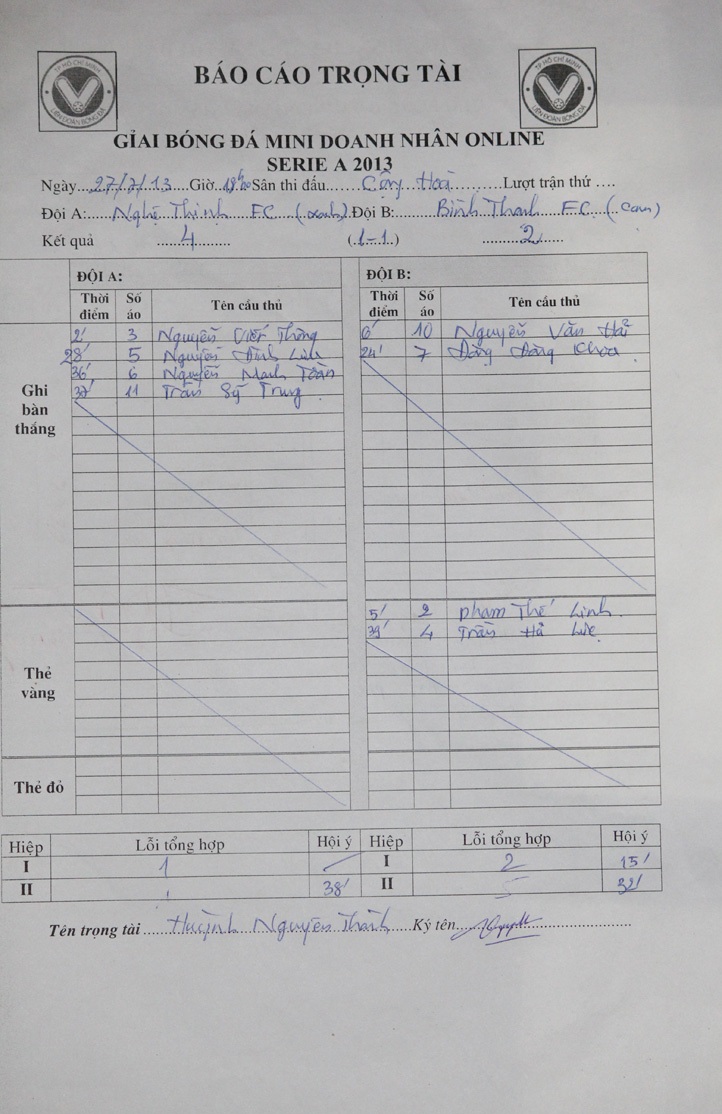 TP HỒ CHÍ MINH
LIÊN ĐOÀN BÓNG ĐÁ
BÁO CÁO TRỌNG TÀI
TP HỒ CHÍ MINH
LIÊN ĐOÀN BÓNG ĐÁ
GIẢI BÓNG ĐÁ MINI DOANH NHÂN ONLINE
SERIE A 2013
Ngày...27/7/13....Giờ.. Sân thi đấu.......Cộng Hoà...........Lượt trận thứ ....
Đội A:.....Nghệ Thịnh FC (xanh).Đội B:.........Bình Thanh FC (cam)
Kết quả ......4......... (.1-1.) .........2......
ĐỘI A: ĐỘI B:
Thời điểm Số áo Tên cầu thủ Thời điểm Số áo Tên cầu thủ
Ghi bàn thắng
2' 3 Nguyễn Viết Thông 6' 10 Nguyễn Văn Hải
28' 5 Nguyễn Đình Linh 24' 7 Đặng Đăng Khoa
36' 6 Nguyễn Mạnh Toàn
37' 11 Trần Sỹ Trung
Thẻ vàng
5' 2 Phạm Thế Linh
39' 4 Trần Hà Lực
Thẻ đỏ
Hiệp Lỗi tổng hợp Hội ý Hiệp Lỗi tổng hợp Hội ý
I 1 I 2 15'
II 1 38' II 5 32'
Tên trọng tài ......Huỳnh Nguyên Thành....Ký tên..................